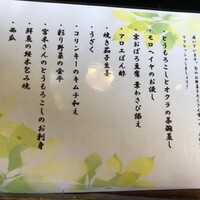 ・とうもろこしとオクラの茶碗蒸し
・モロヘイヤのお浸し
・京おぼろ豆腐 茎わさび添え
・アロエぽん酢
・焼き茄子生姜
・うざく
・コリンキーのキムチ和え
・彩り野菜の金平
・宮本さんのとうもろこしのお刺身
・鮮魚の経木包み焼
・西瓜